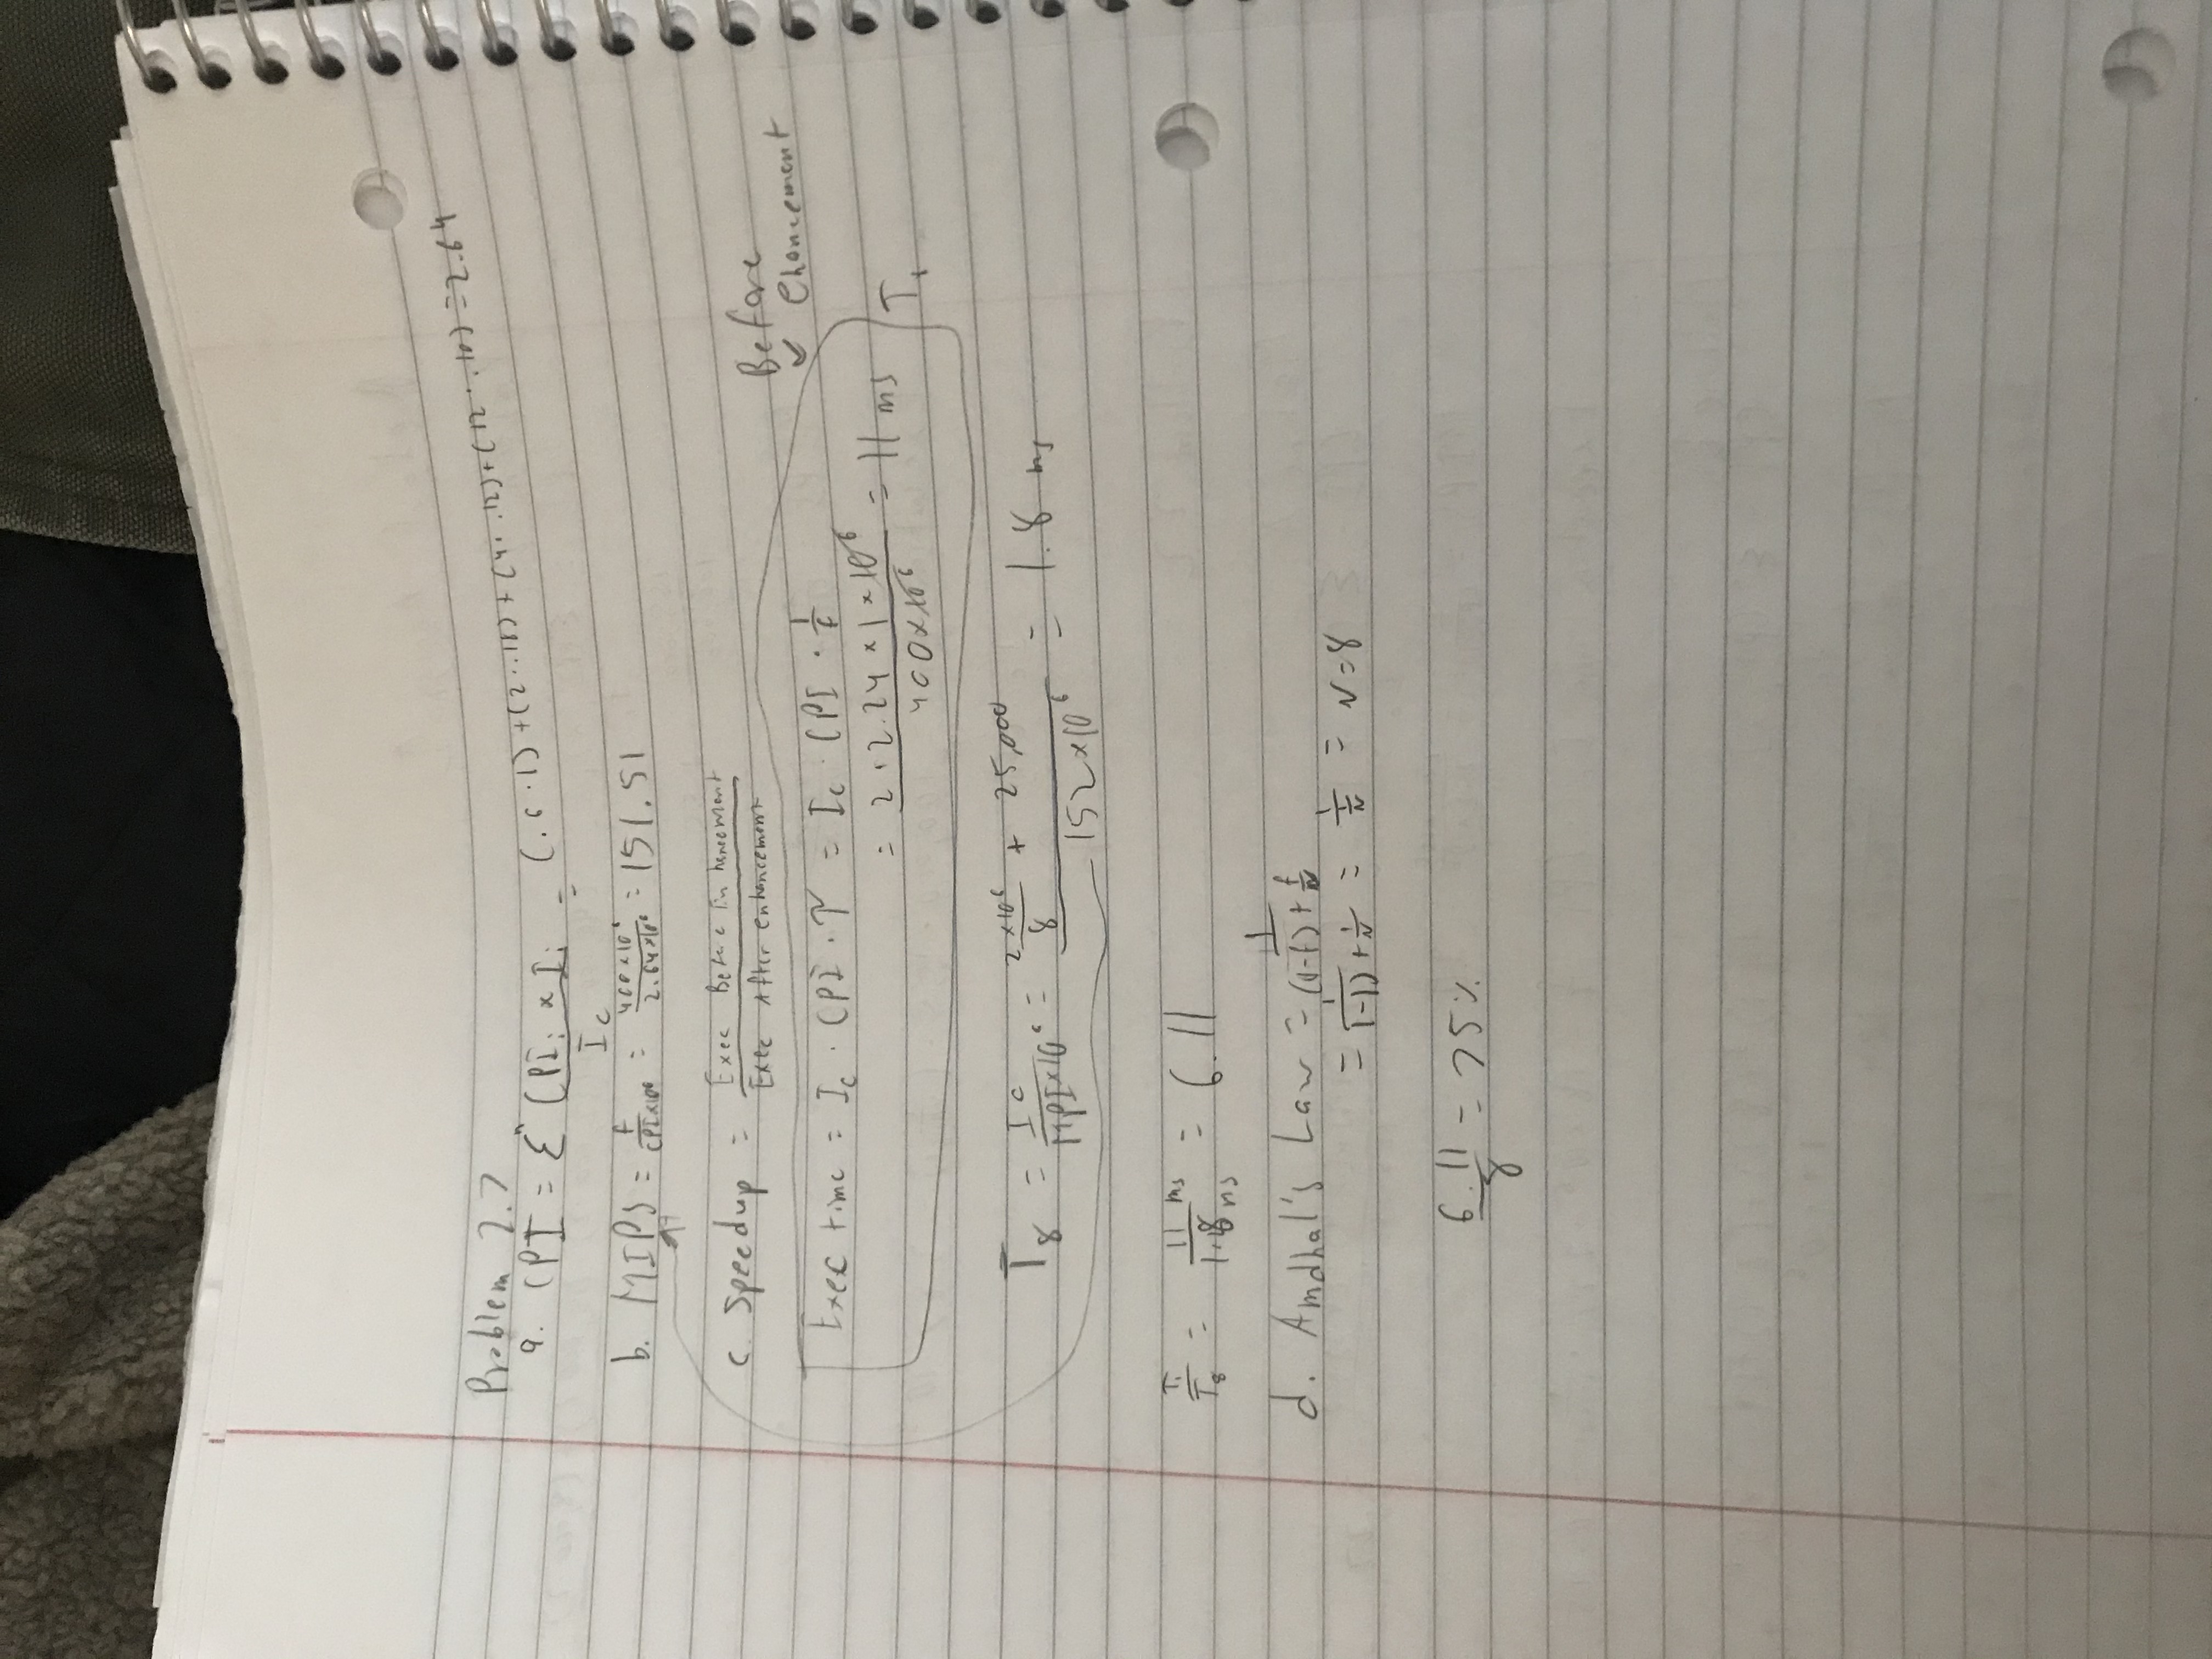 Problem 2.7
a. CPI = Σⁿ (CPIᵢ × Iᵢ / I_c = (.6 · 1) + (2 · .18) + (4 · .12) + (12 · .10) = 2.64
b. MIPS = f / CPI×10⁶ = 400×10⁶ / 2.64×10⁶ = 151.51
c. Speedup = Exec Before Enhancement / Exec After enhancement
Before
Ehancement
Exec time = I_c · CPI · τ = I_c · CPI · 1/f
= 2 · 2.24 × 1 × 10⁶ / 400×10⁶ = 11 ms T₁
T₈ = I_c / MPI×10⁶ = (2×10⁶ / 8 + 25,000) / 152×10⁶ = 1.8 ms
T₁/T₈ = 11 ms / 1.8 ms = 6.11
d. Amdhal's Law = 1 / (1-f) + f/N
= 1 / 1-1) + 1/N = 1 / 1/N = N=8
6.11 / 8 = 75%